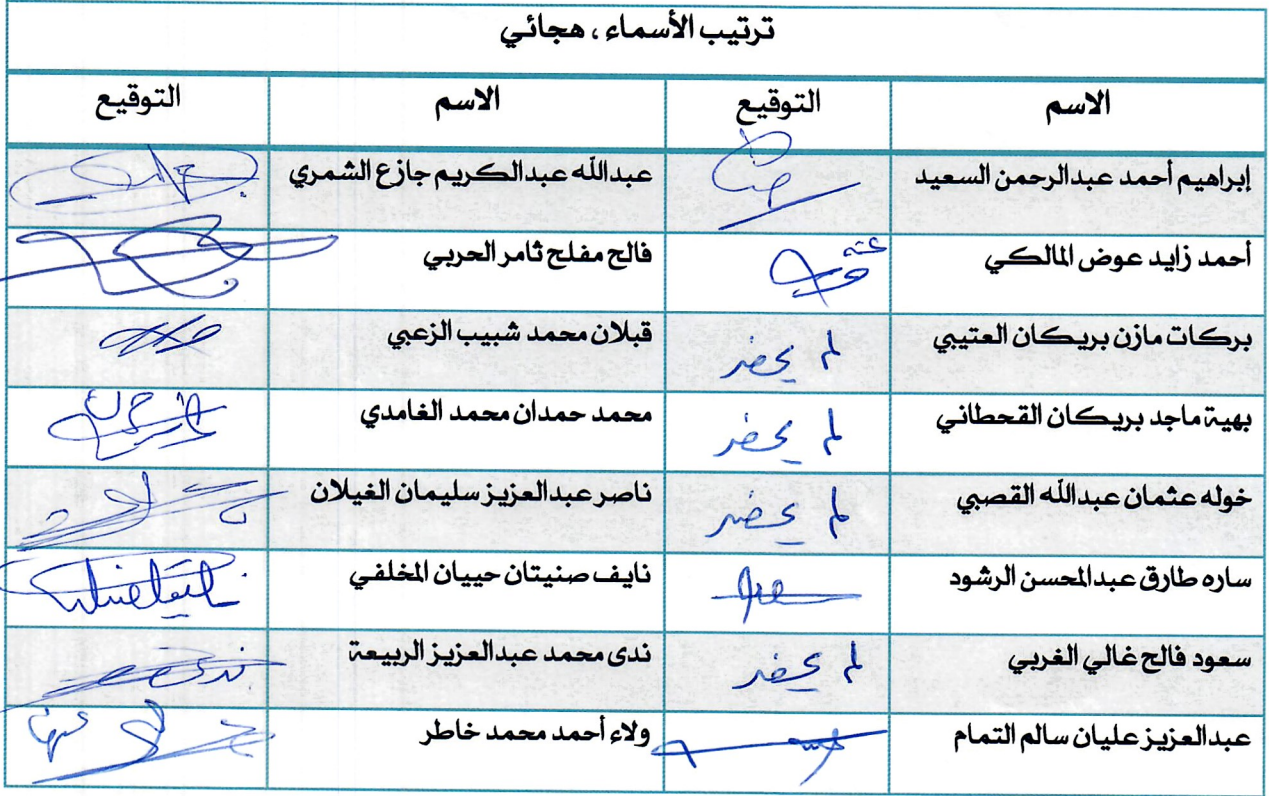 ترتيب الأسماء ، هجائي
الاسم التوقيع الاسم التوقيع
إبراهيم أحمد عبدالرحمن السعيد عبدالله عبدالكريم جازع الشمري
أحمد زايد عوض المالكي عنه فالح مفلح ثامر الحربي
بركات مازن بريكان العتيبي لم يحضر قبلان محمد شبيب الزعبي
بهية ماجد بريكان القحطاني لم يحضر محمد حمدان محمد الغامدي
خوله عثمان عبدالله القصبي لم يحضر ناصر عبدالعزيز سليمان الغيلان
ساره طارق عبدالمحسن الرشود نايف صنيتان حبيبان المخلفي
سعود فالح غالي الغربي لم يحضر ندى محمد عبدالعزيز الربيعة ندى
عبدالعزيز عليان سالم التمام ولاء أحمد محمد خاطر عنها